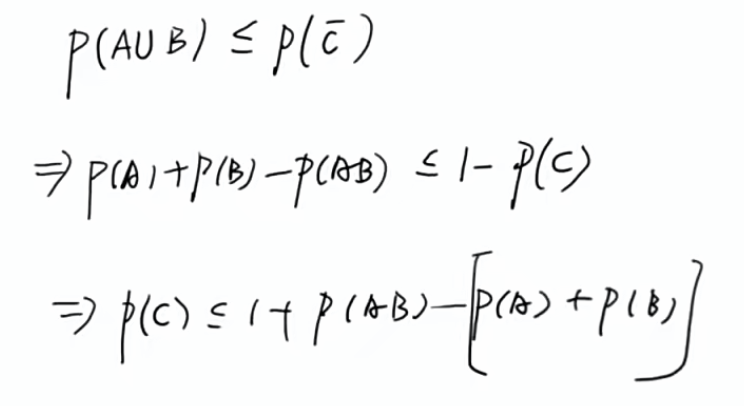 P(A∪B) ≤ P(C̄)
⇒ P(A)+P(B)-P(AB) ≤ 1-P(C)
⇒ P(C) ≤ 1+P(AB)-[P(A)+P(B)]